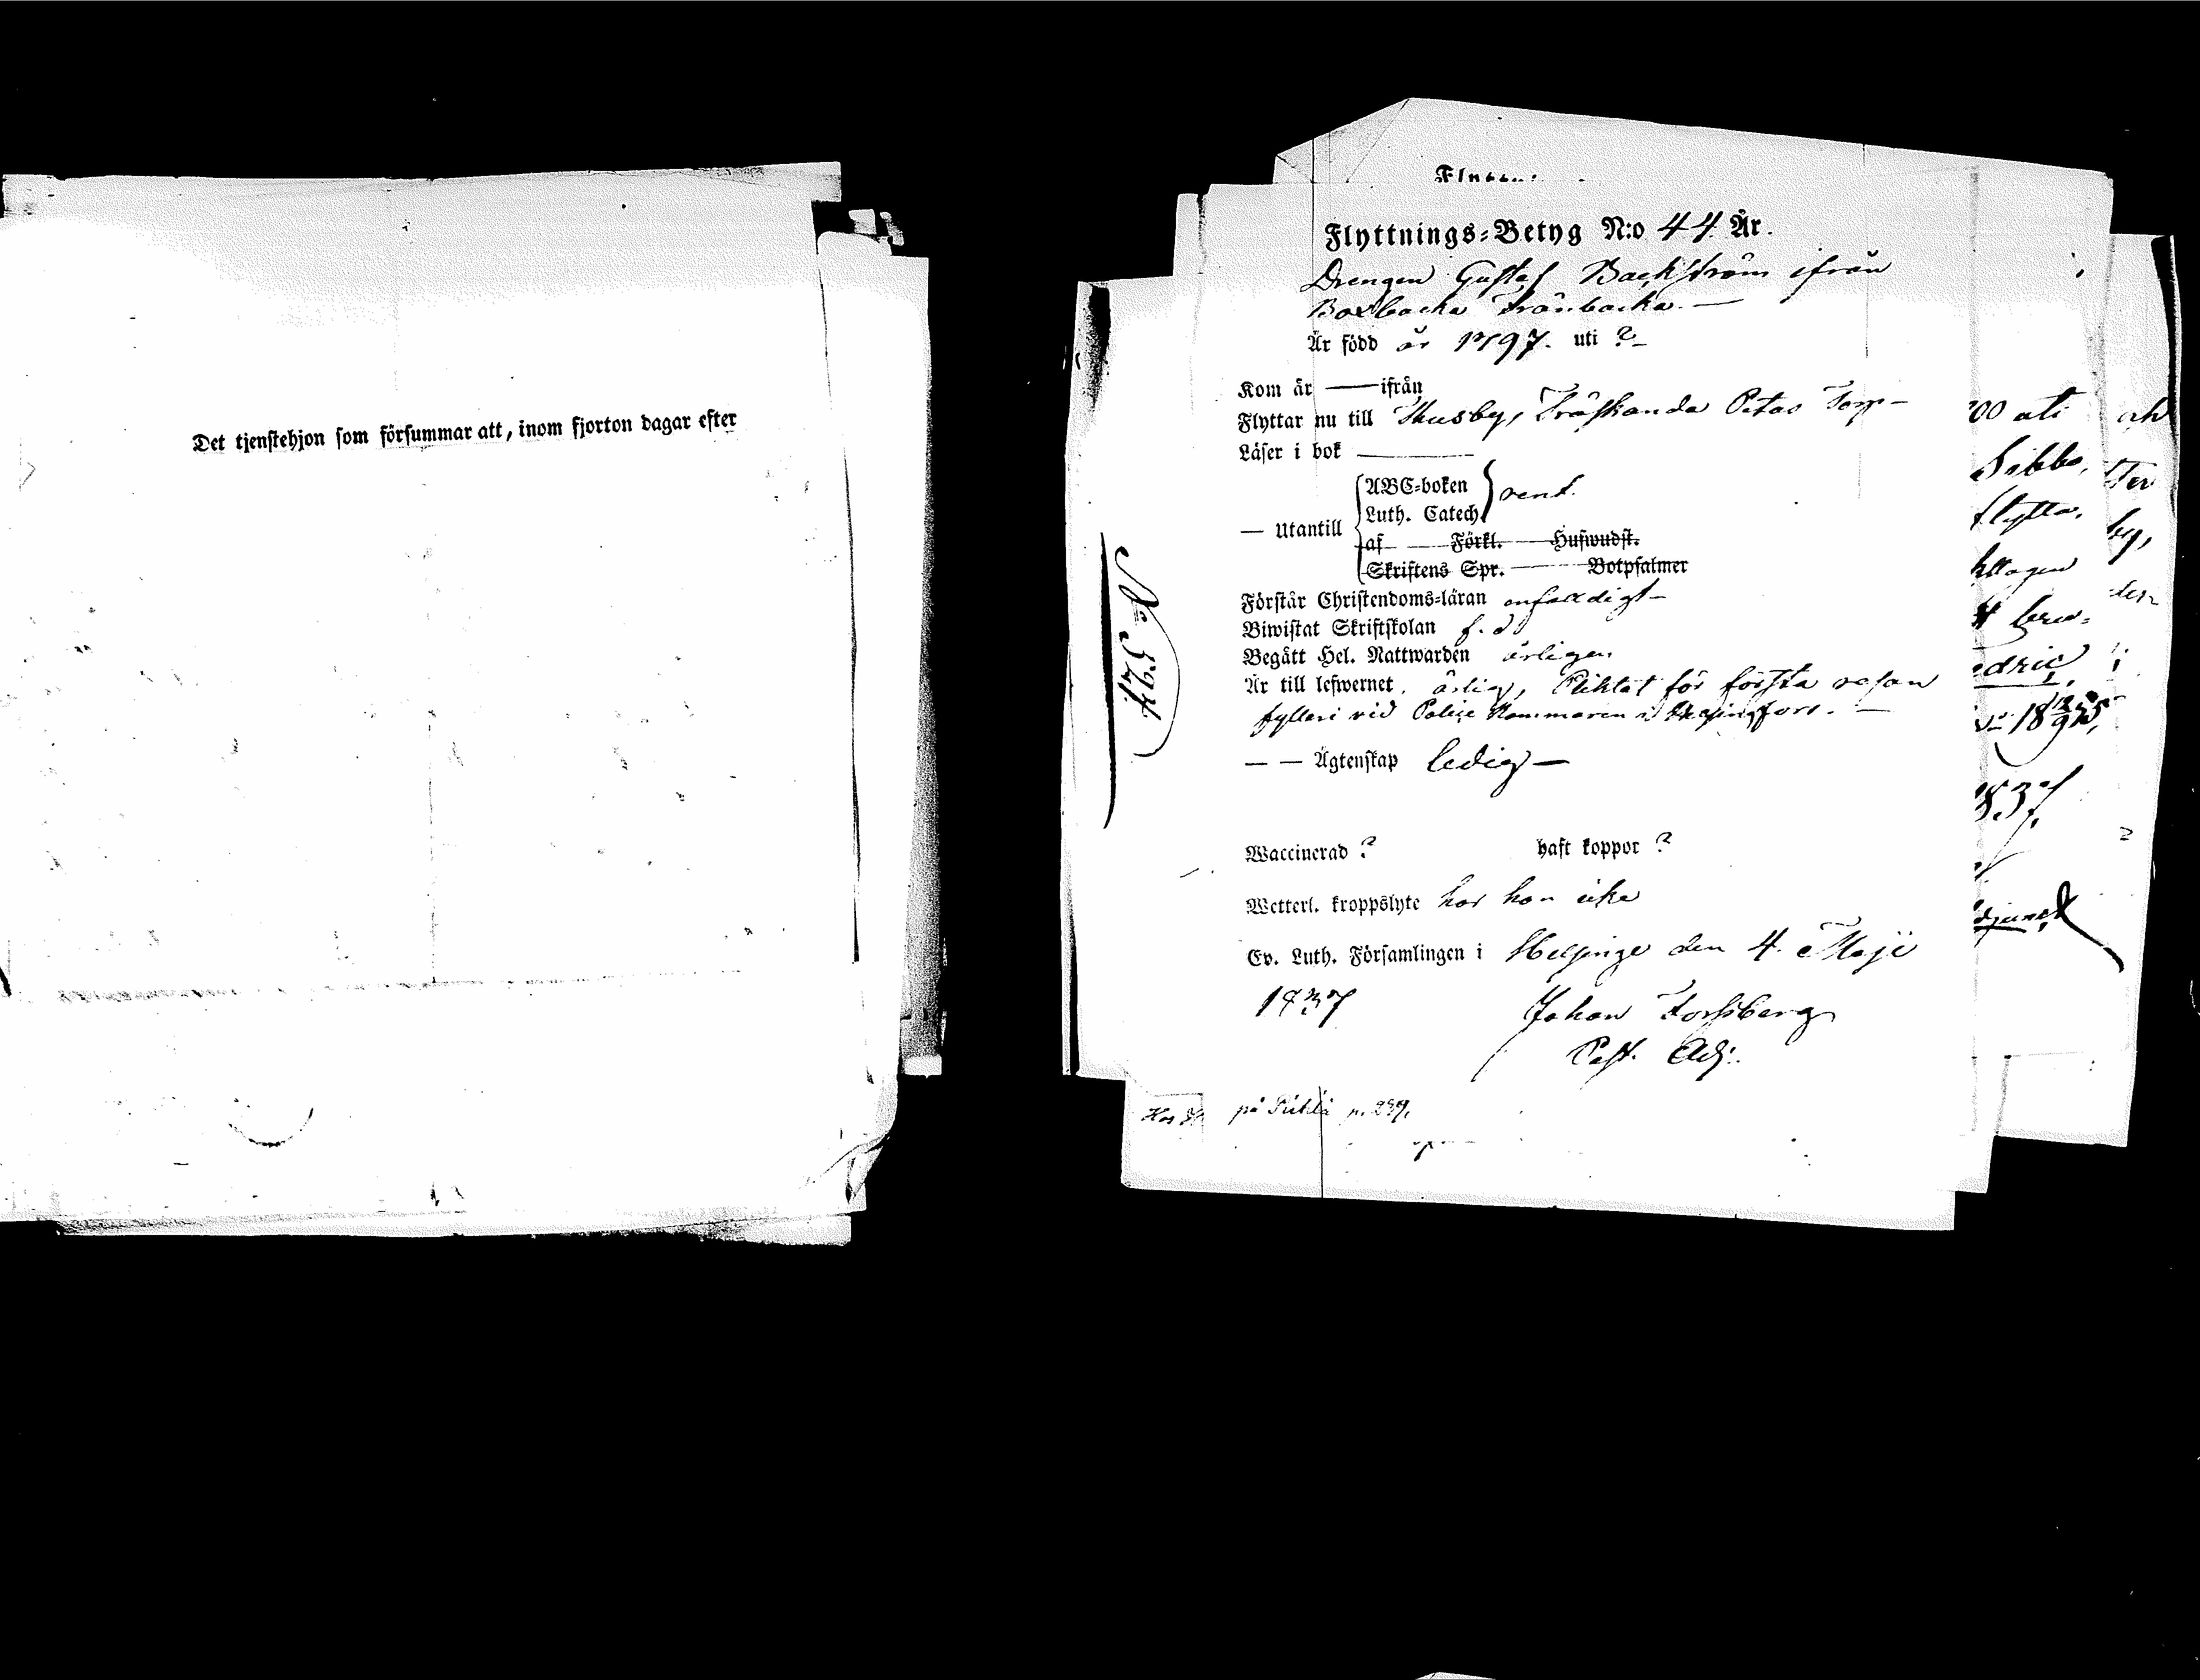 Det tjenstehjon som försummar att, inom fjorton dagar efter
Flyttnings-Betyg N:o 44. År.
Drengen Gustaf Backström ifrån
Boxbacka Tranbacka. —
Är född år 1797. uti ?
Kom år — ifrån
Flyttar nu till Husby, Träskanda Petas Torp —
Läser i bok
— Utantill
ABC-boken
Luth. Catech.
rent.
af — Förkl. — Hufwudst.
Skriftens Spr. — Botpsalmer
Förstår Christendoms-läran enfaldigt —
Biwistat Skriftskolan f. d.
Begått Hel. Nattwarden årligen
Är till lefwernet ärlig, Pliktat för första resan
fylleri vid Police Kammaren i Helsingfors. —
— — Ägtenskap ledig —
Waccinerad ? haft koppor ?
Wetterl. kroppslyte har han icke
Ev. Luth. Församlingen i Helsinge den 4. Maji
1837
Johan Forssberg
Past. Adj.
på p. 239.
No 594
00 uti
Sibbo,
flytta,
edric
1835,
837.
djunct